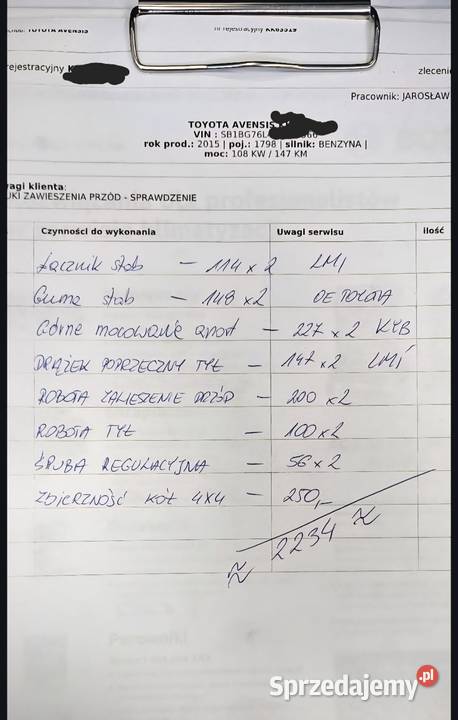 TOYOTA AVENSIS
nr rejestracyjny KR65519
rejestracyjny K
zleceni
Pracownik: JAROSŁAW
TOYOTA AVENSIS
VIN : SB1BG76L
rok prod.: 2015 | poj.: 1798 | silnik: BENZYNA |
moc: 108 KW / 147 KM
wagi klienta:
UKI ZAWIESZENIA PRZÓD - SPRAWDZENIE
Czynności do wykonania Uwagi serwisu ilość
Łącznik stab — 114 x 2 LMI
Guma stab — 148 x 2 OE TOYOTA
Górne mocowanie amort — 227 x 2 KYB
DRĄŻEK POPRZECZNY TYŁ — 147 x 2 LMI
ROBOTA ZAWIESZENIE PRZÓD — 200 x 2
ROBOTA TYŁ — 100 x 2
ŚRUBA REGULACYJNA — 56 x 2
ZBIERZNOŚĆ KÓŁ 4X4 — 250,-
≈ 2234 ≈
Sprzedajemy.pl